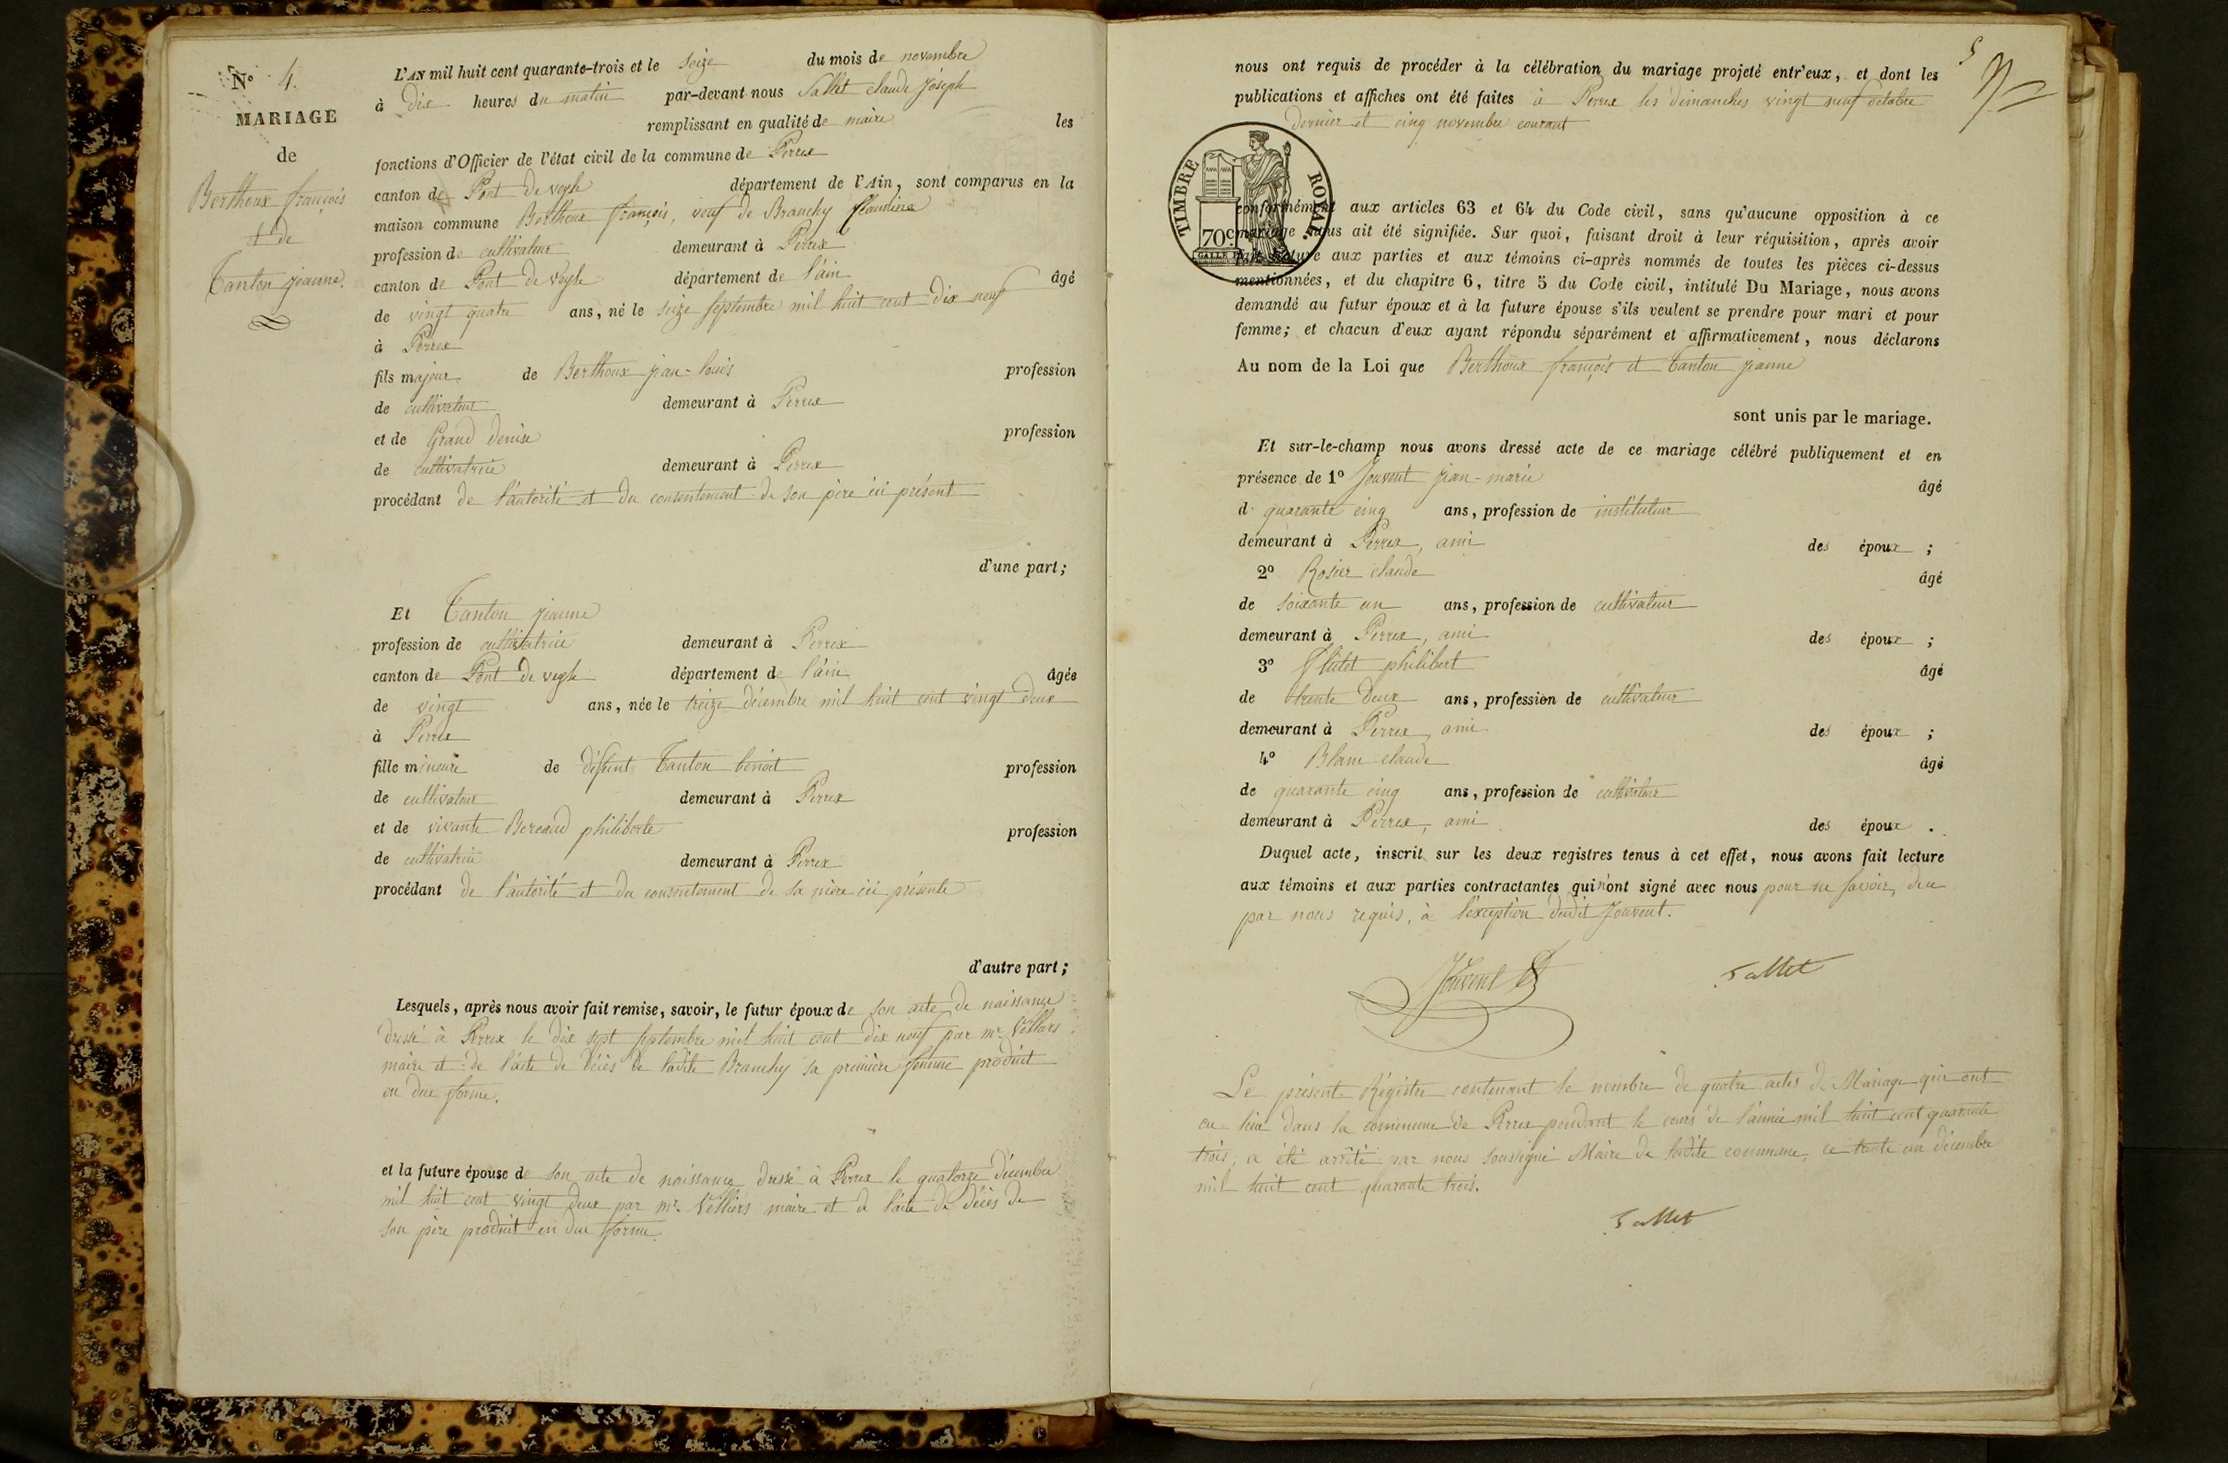 N° 4.
MARIAGE
de
Berthoux françois
et de
Tanton jeanne.
L'AN mil huit cent quarante-trois et le seize du mois de novembre
à dix heures du matin par-devant nous Sallet claude Joseph
remplissant en qualité de maire les
fonctions d'Officier de l'état civil de la commune de Perrex
canton de Pont de veyle département de l'Ain, sont comparus en la
maison commune Berthoux françois, veuf de Branchy claudine
profession de cultivateur demeurant à Perrex
canton de Pont de Veyle département de l'ain âgé
de vingt quatre ans, né le seize septembre mil huit cent dix neuf
à Perrex
fils majeur de Berthoux jean-louis profession
de cultivateur demeurant à Perrex
et de Grand denise profession
de cultivatrice demeurant à Perrex
procédant de l'autorité et du consentement de son père ici présent
d'une part;
Et Tanton jeanne
profession de cultivatrice demeurant à Perrex
canton de Pont de veyle département de l'ain âgée
de vingt ans, née le treize décembre mil huit cent vingt deux
à Perrex
fille mineure de défunt Tanton benoit profession
de cultivateur demeurant à Perrex
et de vivante Bereaud philiberte profession
de cultivatrice demeurant à Perrex
procédant de l'autorité et du consentement de sa mère ici présente
d'autre part;
Lesquels, après nous avoir fait remise, savoir, le futur époux de son acte de naissance
dressé à Perrex le dix sept septembre mil huit cent dix neuf par mr. Velliers
maire et de l'acte de décès de ladite Branchy sa première femme produit
en due forme.
et la future épouse de son acte de naissance dressé à Perrex le quatorze décembre
mil huit cent vingt deux par mr. Velliers maire et de l'acte de décès de
son père produit en due forme.
5
nous ont requis de procéder à la célébration du mariage projeté entr'eux, et dont les
publications et affiches ont été faites à Perrex les dimanches vingt neuf octobre
dernier et cinq novembre courant
TIMBRE ROYAL.
70c
conformément aux articles 63 et 64 du Code civil, sans qu'aucune opposition à ce
mariage nous ait été signifiée. Sur quoi, faisant droit à leur réquisition, après avoir
fait lecture aux parties et aux témoins ci-après nommés de toutes les pièces ci-dessus
mentionnées, et du chapitre 6, titre 5 du Code civil, intitulé Du Mariage, nous avons
demandé au futur époux et à la future épouse s'ils veulent se prendre pour mari et pour
femme; et chacun d'eux ayant répondu séparément et affirmativement, nous déclarons
Au nom de la Loi que Berthoux françois et Tanton jeanne
sont unis par le mariage.
Et sur-le-champ nous avons dressé acte de ce mariage célébré publiquement et en
présence de 1° Jouvent jean-marie âgé
de quarante cinq ans, profession de instituteur
demeurant à Perrex, ami des époux ;
2° Rosier claude âgé
de soixante un ans, profession de cultivateur
demeurant à Perrex, ami des époux ;
3° Flutet philibert âgé
de trente deux ans, profession de cultivateur
demeurant à Perrex, ami des époux ;
4° Blanc claude âgé
de quarante cinq ans, profession de cultivateur
demeurant à Perrex, ami des époux .
Duquel acte, inscrit sur les deux registres tenus à cet effet, nous avons fait lecture
aux témoins et aux parties contractantes qui n'ont signé avec nous pour ne savoir, de ce
par nous requis, à l'exception dudit Jouvent.
Jouvent Sallet
Le présent Régistre contenant le nombre de quatre actes de Mariage qui ont
eu lieu dans la commune de Perrex pendant le cours de l'année mil huit cent quarante
trois, a été arrêté par nous soussigné Maire de ladite commune, ce trente un décembre
mil huit cent quarante trois.
Sallet